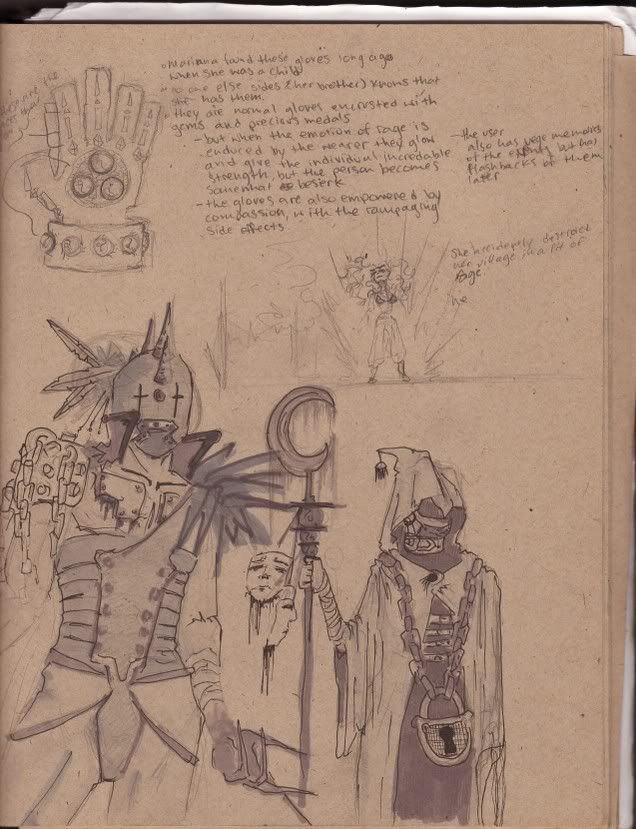 Mariana found these gloves long ago
when she was a child
no one else sides (her brother) knows that
she has them.
they are normal gloves encrusted with
gems and precious medals
- but when the emotion of rage is
endured by the wearer they glow
and give the individual incredable
strength, but the person becomes
somewhat beserk
- the gloves are also empowered by
compassion, with the rampaging
side effects
- the user
also has vege memories
of the but has
flashbacks of them
later
She accidently destroyed
her village in a fit of
Rage.
the
these are the